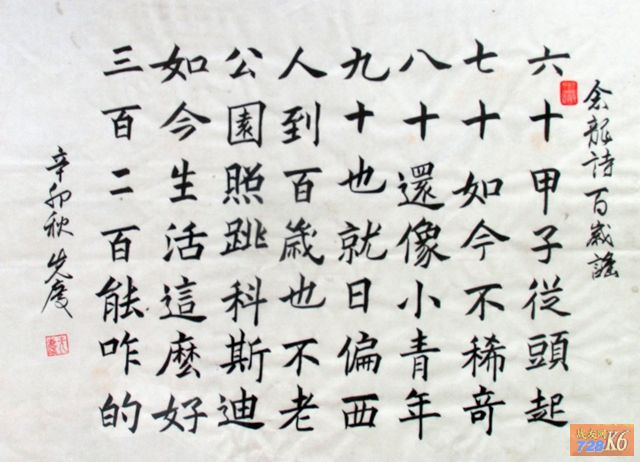 余龍詩百歲謠
六十甲子從頭起
七十如今不稀奇
八十還像小青年
九十也就日偏西
人到百歲也不老
公園照跳科斯迪
如今生活這麼好
三百二百能咋的
辛卯秋
728K6